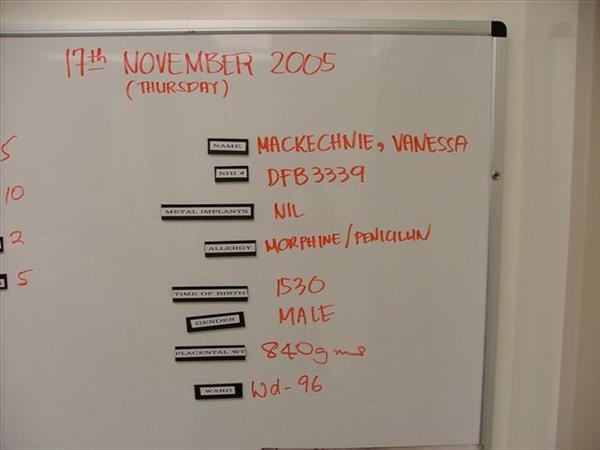 17th NOVEMBER 2005
(THURSDAY)
5
NAME MACKECHNIE, VANESSA
NHI # DFB3339
10
METAL IMPLANTS NIL
2
ALLERGY MORPHINE/PENICILLIN
5
TIME OF BIRTH 1530
GENDER MALE
PLACENTAL WT 840gms
WARD Wd-96